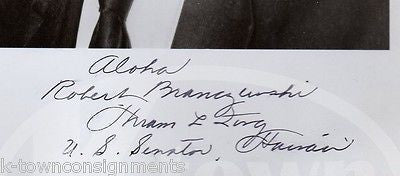 Aloha
Robert Branczewski
Hiram L Fong
U. S. Senator, Hawaii
k-townconsignments